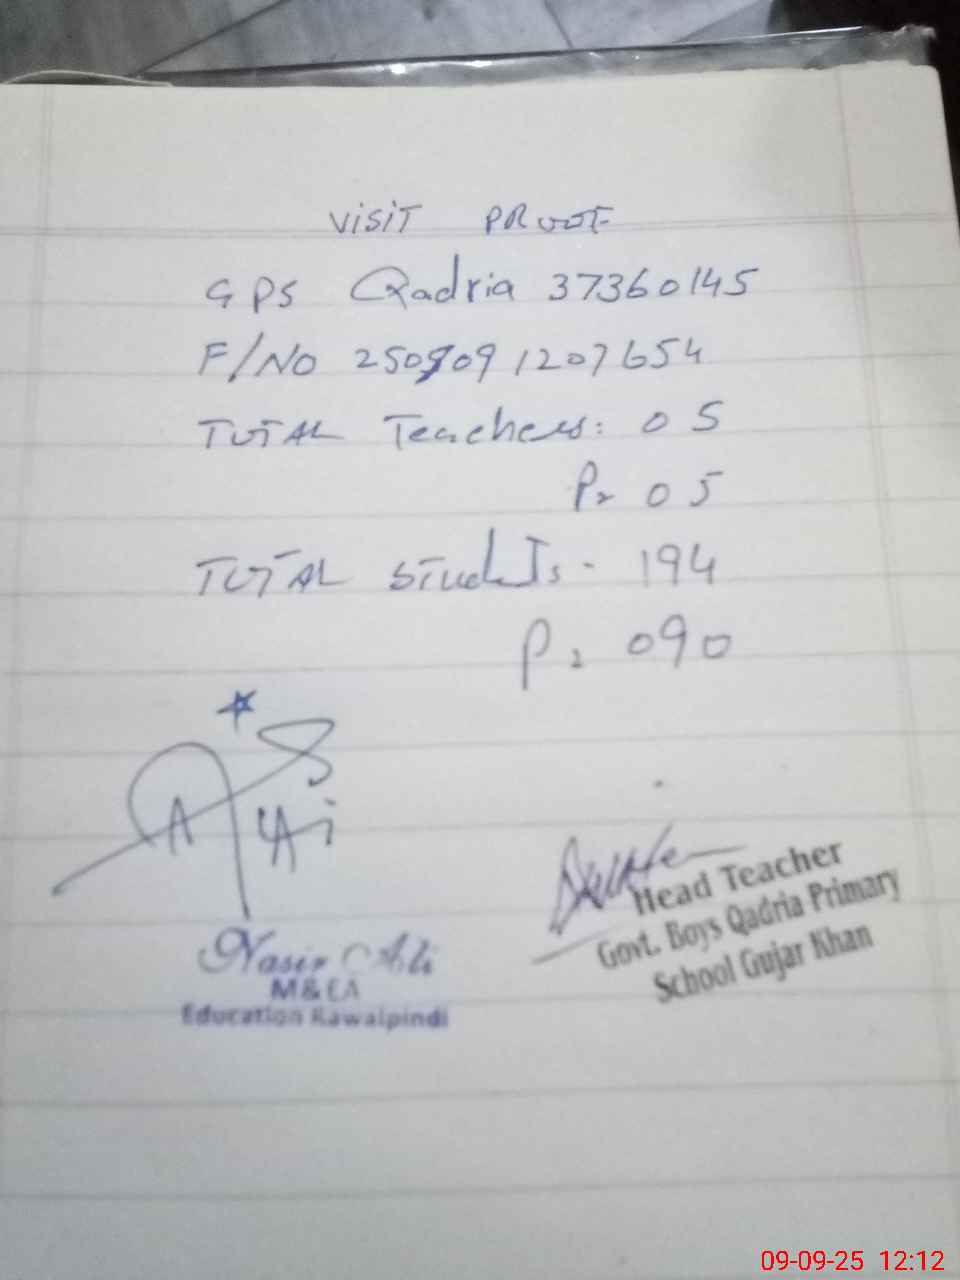 VISIT PROOF
GPS Qadria 37360145
F/NO 250909 1207654
TOTAL Teachers: 05
P= 05
TOTAL Students - 194
P= 090
Nasir Ali
M&EA
Education Rawalpindi
Head Teacher
Govt. Boys Qadria Primary
School Gujar Khan
09-09-25 12:12